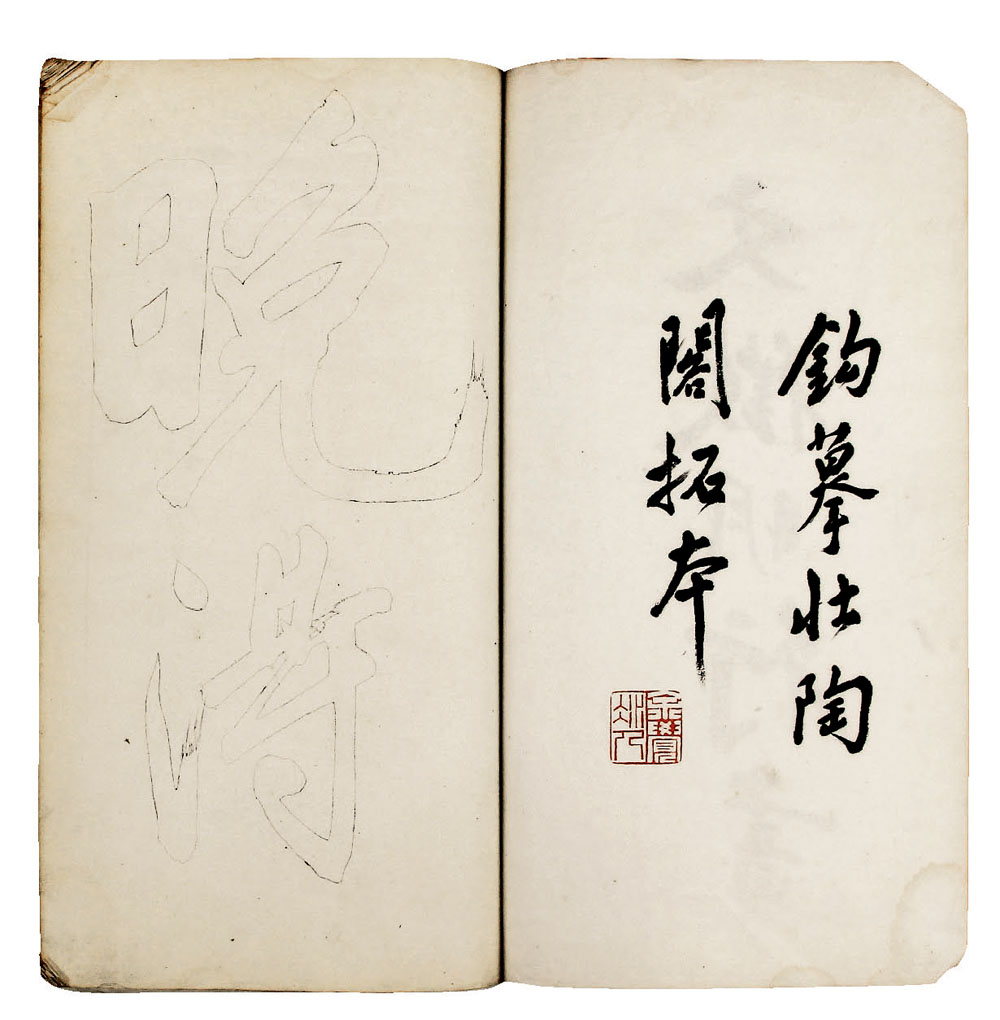 鈎摹壯陶
閣拓本
晚